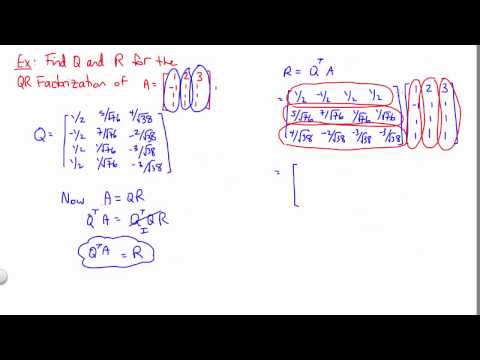 Ex: Find Q and R for the
QR Factorization of A = [ 1 2 3
-1 1 1
1 1 1
1 1 1 ] .
Q = [ 1/2 5/√76 4/√38
-1/2 7/√76 -2/√38
1/2 1/√76 -3/√38
1/2 1/√76 -3/√38 ]
Now A = QR
QᵀA = QᵀQR
I
QᵀA = R
R = QᵀA
= [ 1/2 -1/2 1/2 1/2
5/√76 7/√76 1/√76 1/√76
4/√38 -2/√38 -3/√38 -3/√38 ] [ 1 2 3
-1 1 1
1 1 1
1 1 1 ]
= [